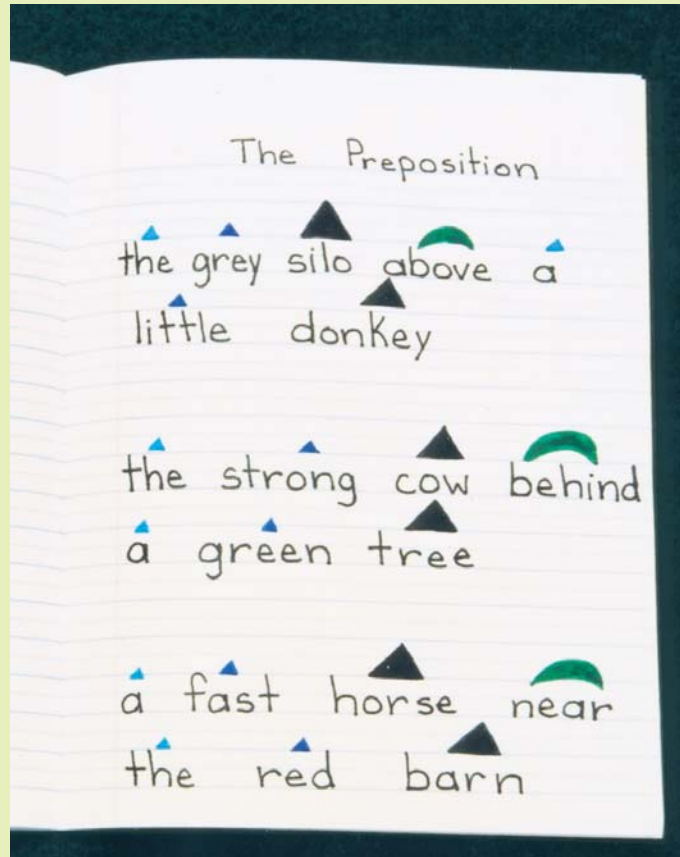 The Preposition
the grey silo above a
little donkey
the strong cow behind
a green tree
a fast horse near
the red barn